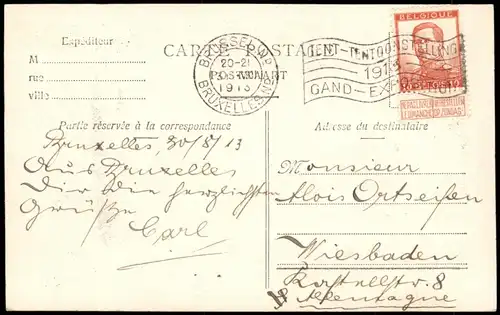 Expéditeur
M
rue
ville
CARTE POSTALE
POSTKAART
BRUSSEL
20-21
1913
BRUXELLES
GENT-TENTOONSTELLING
1913
GAND-EXPOSITION
BELGIQUE
Partie réservée à la correspondance
Adresse du destinataire
Bruxelles, 30/8/13
Aus Bruxelles
Dir die herzlichsten
Grüße
Carl
Monsieur
Alois Ortseifen
Wiesbaden
Kastellstr. 8
Allemagne